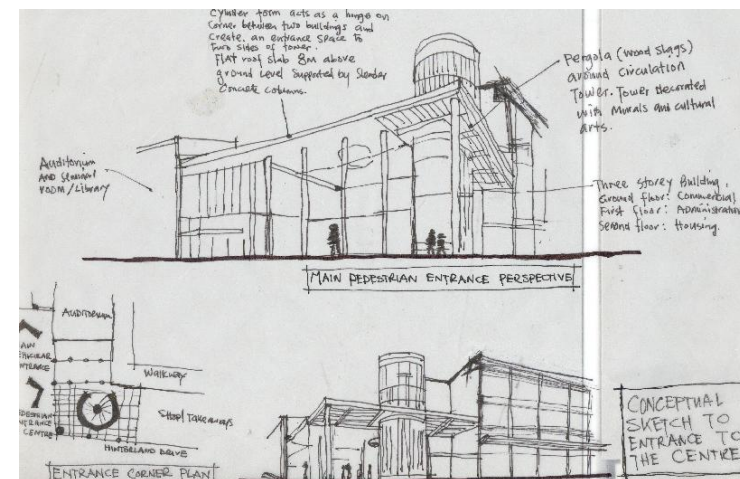 Cylinder form acts as a hinge on
Corner between two buildings and
Create, an entrance space to
two sides of tower.
Flat roof slab 8m above
ground level supported by slender
Concrete columns.
Pergola (wood slaggs)
around circulation
Tower. Tower decorated
with Murals and cultural
arts.
Auditorium
AND seminar
room/Library
Three storey Building.
Ground floor: Commercial
First floor: Administration
Second floor: Housing.
MAIN PEDESTRIAN ENTRANCE PERSPECTIVE
AUDITORIUM
WALKWAY
Shop/Takeaways
HINTERLAND DRIVE
ENTRANCE CORNER PLAN
CENTRE
CONCEPTUAL
SKETCH TO
ENTRANCE TO
THE CENTRE